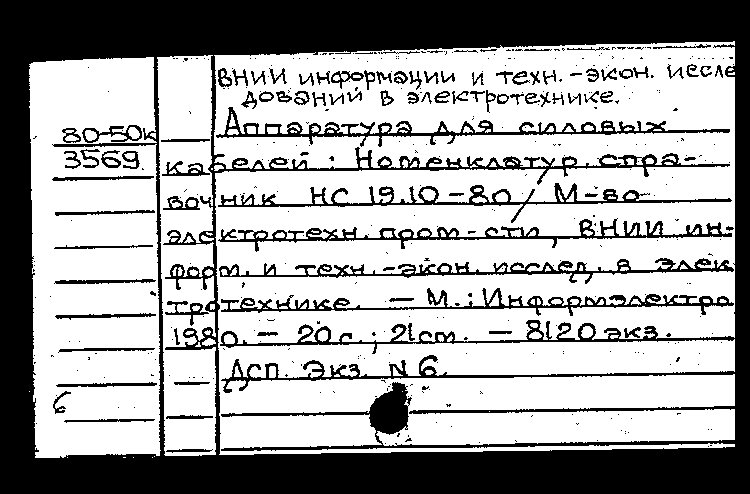 ВНИИ информации и техн.-экон. иссле
дований в электротехнике.
80-50к
Аппаратура для силовых
3569
кабелей : Номенклатур. спра-
вочник НС 19.10-80 / М-во
электротехн. пром-сти, ВНИИ ин-
форм. и техн.-экон. исслед. в элек
тротехнике. — М.: Информэлектро
1980. — 20 с.; 21 см. — 8120 экз.
Дсп. Экз. N 6.
6